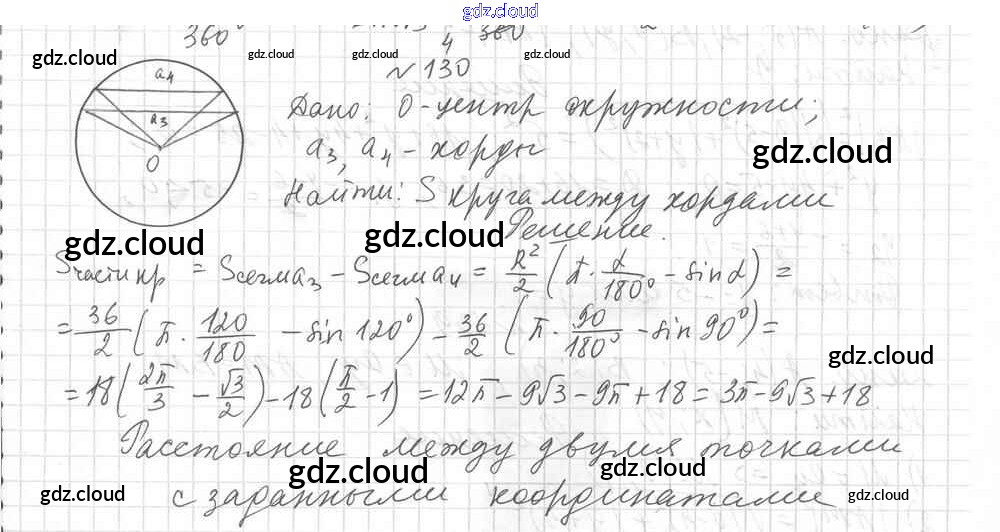 gdz.cloud
360° 4 360
gdz.cloud gdz.cloud gdz.cloud gdz.cloud
№ 130
a4
a3
O
Дано: О-центр окружности;
a3, a4 - хорды
gdz.cloud
Найти: S круга между хордами
Решение.
gdz.cloud gdz.cloud
Sчасти кр = Sсегм a3 - Sсегм a4 = R²/2 (π · α/180° - sin α) =
= 36/2 (π · 120/180 - sin 120°) - 36/2 (π · 90/180° - sin 90°) =
gdz.cloud
= 18 (2π/3 - √3/2) - 18 (π/2 - 1) = 12π - 9√3 - 9π + 18 = 3π - 9√3 + 18
Расстояние между двумя точками
gdz.cloud gdz.cloud gdz.cloud gdz.cloud
с заданными координатами